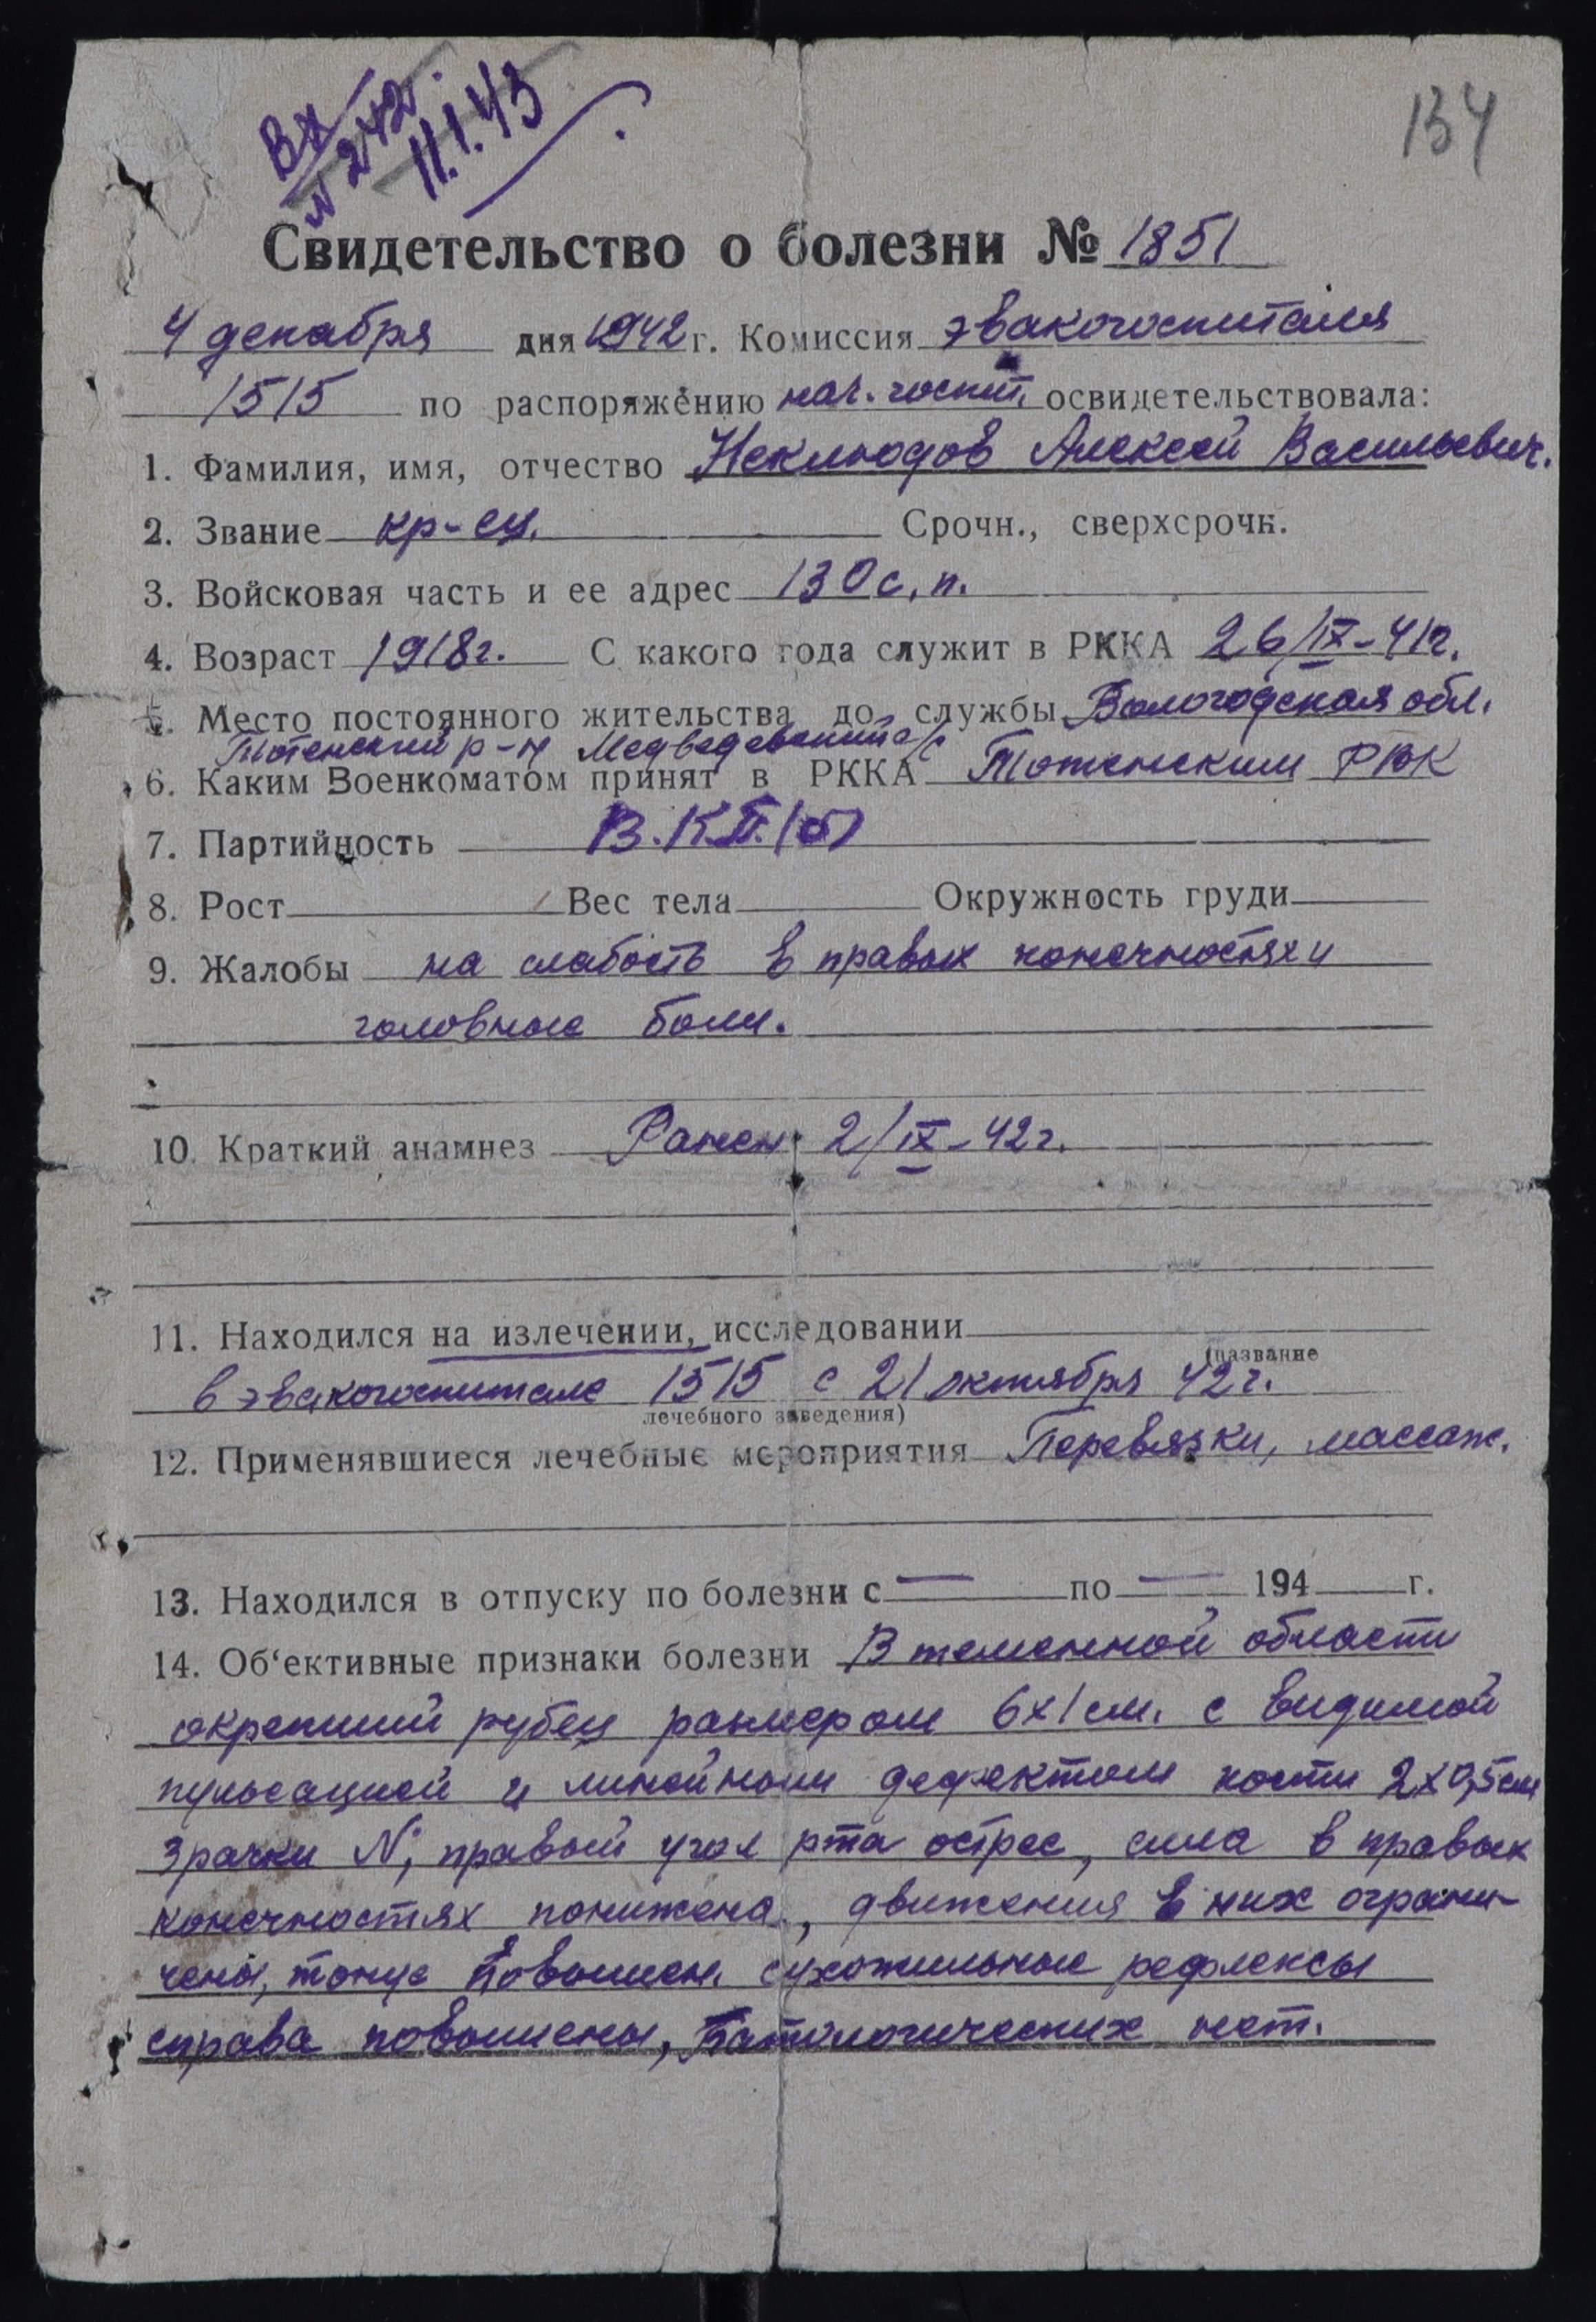 134
Вх
№ 242.
11.1.43
Свидетельство о болезни № 1851
4 декабря дня 1942 г. Комиссия эвакогоспиталя
1515 по распоряжению нач. госпит. освидетельствовала:
1. Фамилия, имя, отчество Неклюдов Алексей Васильевич.
2. Звание кр-ец. Срочн., сверхсрочн.
3. Войсковая часть и ее адрес 130 с.п.
4. Возраст 1918г. С какого года служит в РККА 26/IX-41г.
5. Место постоянного жительства до службы Вологодская обл.
Тотемский р-н Медведевский с/с
6. Каким Военкоматом принят в РККА Тотемским РВК
7. Партийность В.К.П.(б)
8. Рост Вес тела Окружность груди
9. Жалобы на слабость в правых конечностях и
головные боли.
10. Краткий анамнез Ранен 2/IX-42г.
11. Находился на излечении, исследовании
(название
в эвакогоспитале 1515 с 21 октября 42г.
лечебного заведения)
12. Применявшиеся лечебные мероприятия Перевязки, массаж.
13. Находился в отпуску по болезни с — по — 194 г.
14. Об‘ективные признаки болезни В теменной области
окрепший рубец размером 6х1 см. с видимой
пульсацией и линейным дефектом кости 2х0,5 см
Зрачки N; правый угол рта острее, сила в правых
конечностях понижена, движения в них ограни-
чены, тонус повышен. сухожильные рефлексы
справа повышены, Патологических нет.